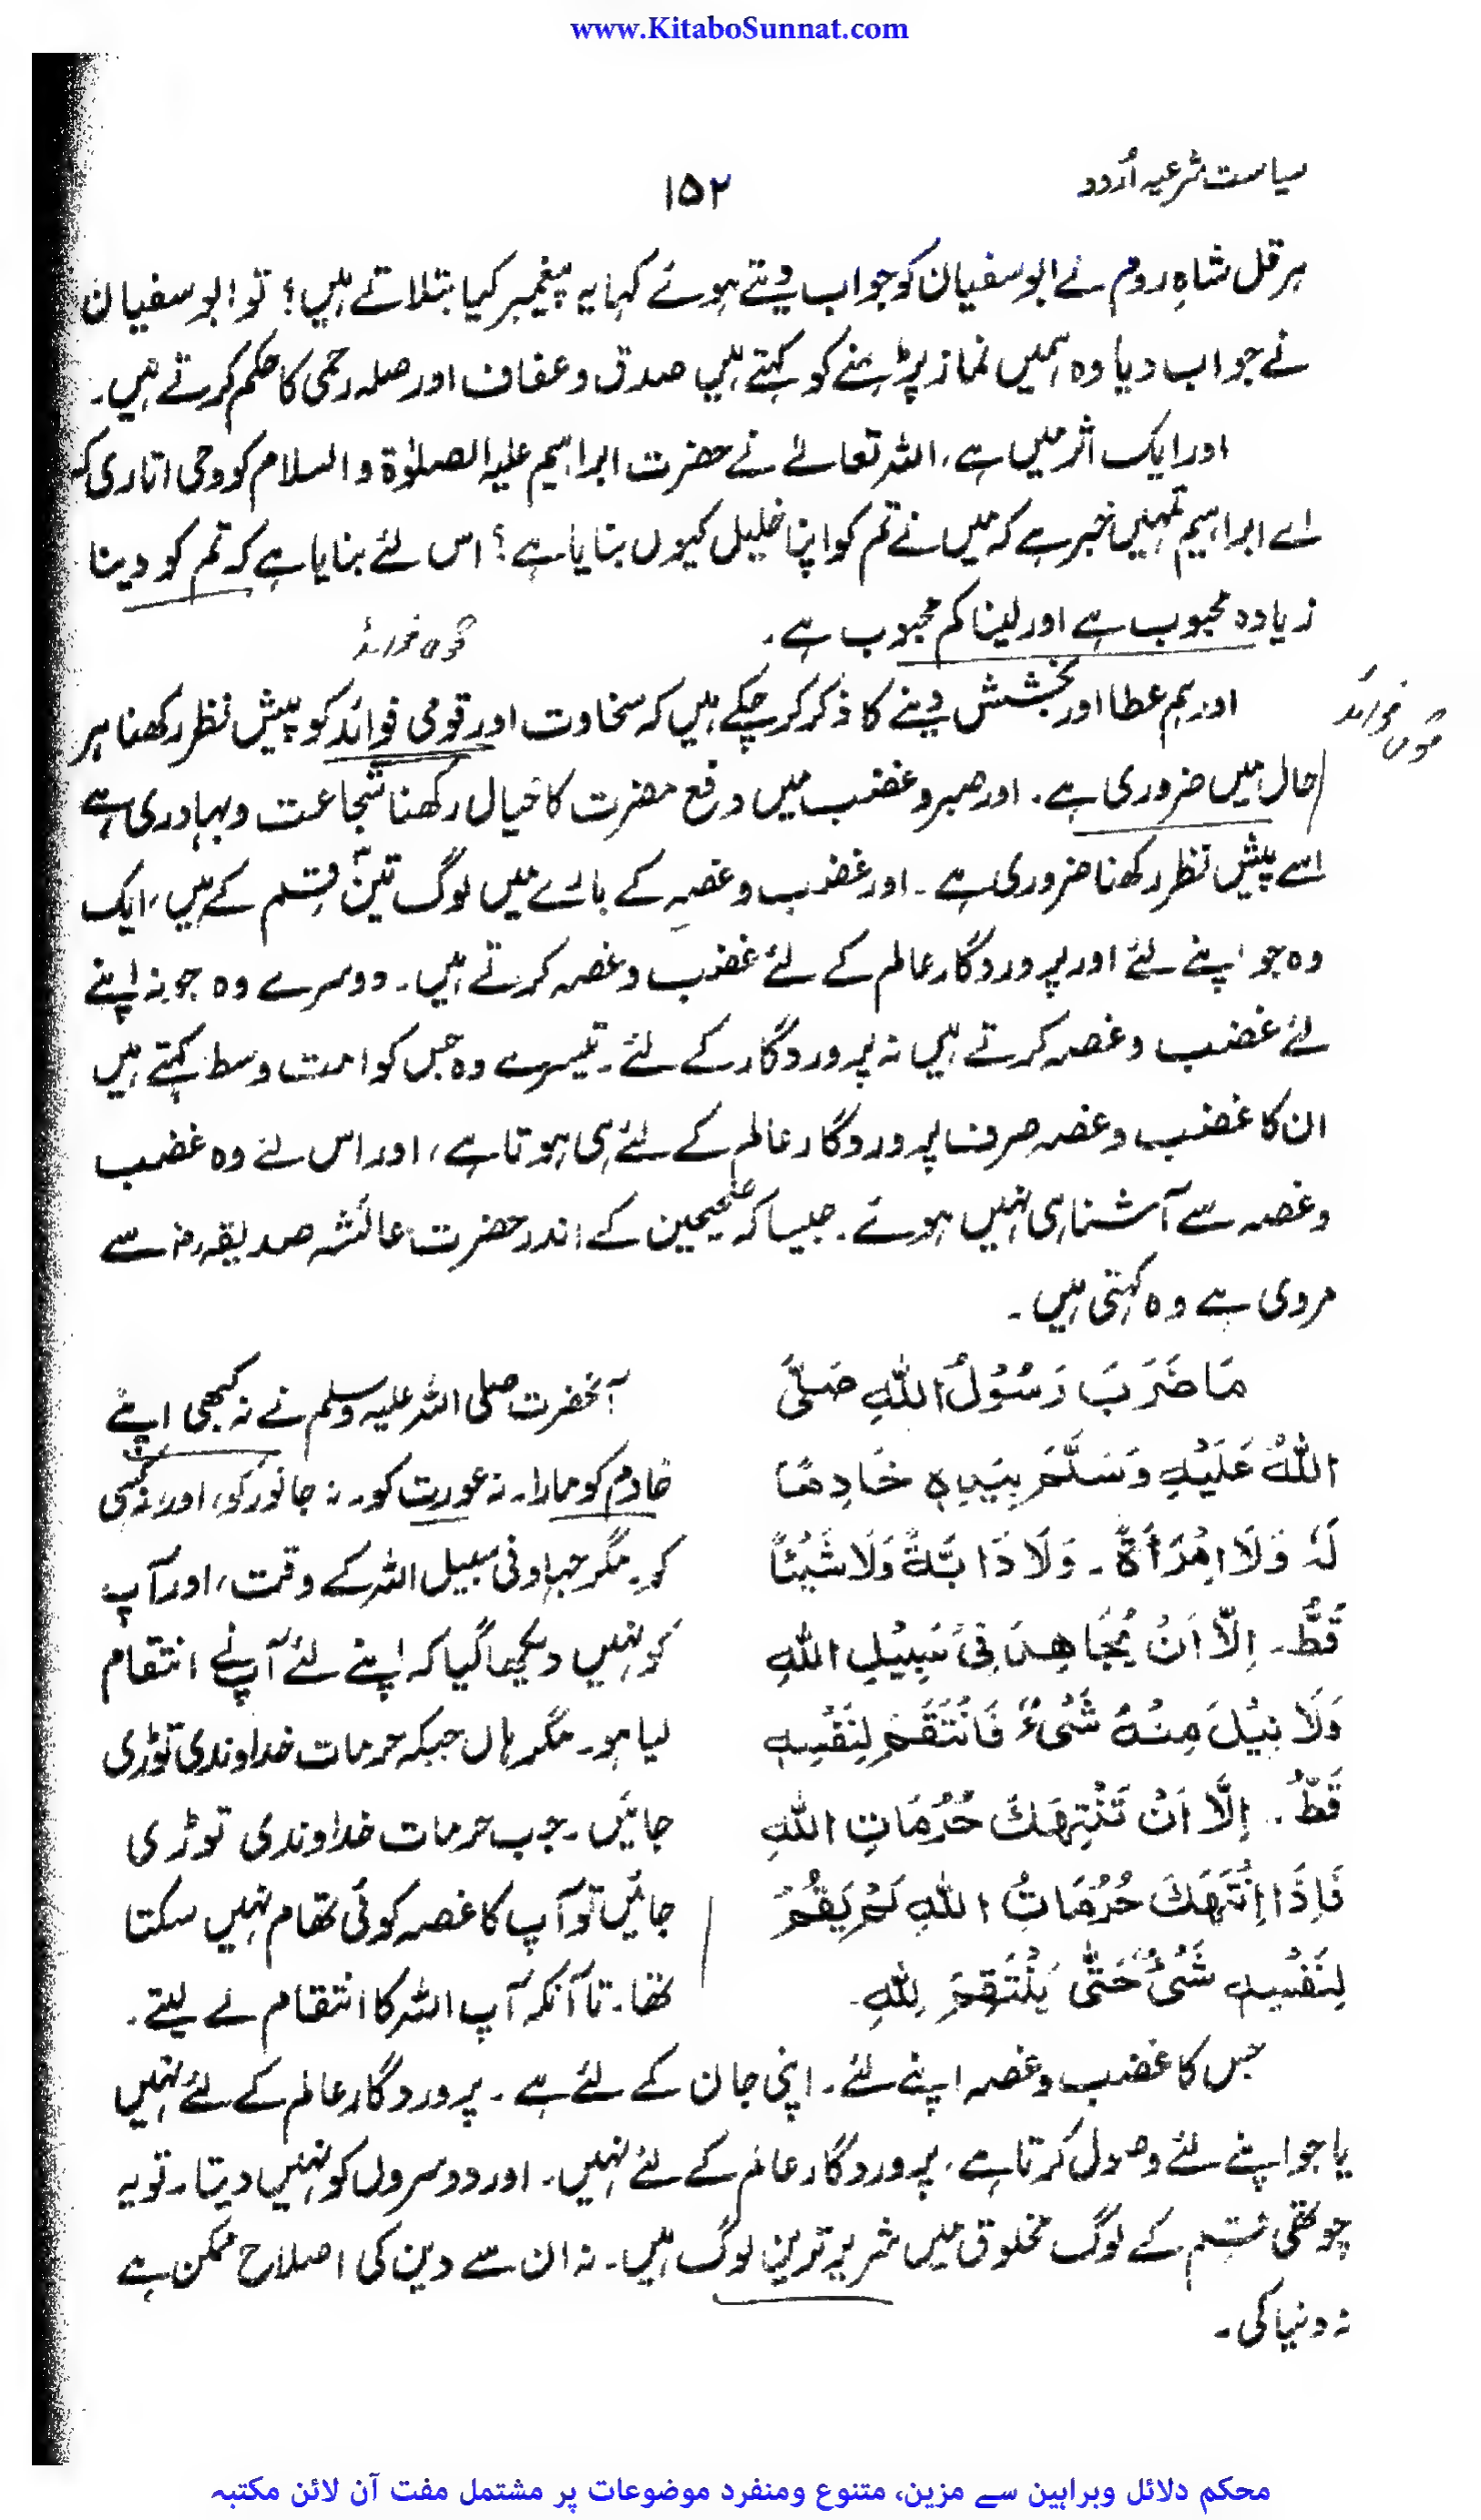 www.KitaboSunnat.com
سیاست شرعیہ اُردو
۱۵۲
ہرقل شاہِ روم نے ابوسفیان کو جواب دیتے ہوئے کہا یہ پیغمبر کیا بتلاتے ہیں؟ تو ابو سفیان
نے جواب دیا وہ ہمیں نماز پڑہنے کو کہتے ہیں صدق و عفاف اور صلہ رحمی کا حکم کرتے ہیں۔
اور ایک اثر میں ہے، اللہ تعالےٰ نے حضرت ابراہیم علیہ الصلوٰۃ والسلام کو وحی اتاری کہ
اے ابراہیم تمہیں خبر ہے کہ میں نے تم کو اپنا خلیل کیوں بنایا ہے؟ اس لئے بنایا ہے کہ تم کو دینا
زیادہ محبوب ہے اور لینا کم محبوب ہے۔
اور ہم عطا اور بخشش دینے کا ذکر کر چکے ہیں کہ سخاوت اور قومی فوائد کو پیش نظر رکھنا ہر
حال میں ضروری ہے۔ اور صبر و غضب میں دفع مضرت کا خیال رکھنا شجاعت و بہادری ہے
اسے پیش نظر رکھنا ضروری ہے۔ اور غضب و غصہ کے بارے میں لوگ تین قسم کے ہیں، ایک
وہ جو اپنے لئے اور پروردگار عالم کے لئے غضب و غصہ کرتے ہیں۔ دوسرے وہ جو نہ اپنے
لئے غضب و غصہ کرتے ہیں نہ پروردگار کے لئے۔ تیسرے وہ جس کو امت وسط کہتے ہیں
ان کا غضب و غصہ صرف پروردگار عالم کے لئے ہی ہوتا ہے، اور اس لئے وہ غضب
و غصہ سے آشنا ہی نہیں ہوئے۔ جیسا کہ صحیحین کے اندر حضرت عائشہ صدیقہ رض سے
مروی ہے وہ کہتی ہیں۔
مَا ضَرَبَ رَسُوْلُ اللّٰهِ صَلَّی
اللّٰهُ عَلَیْهِ وَسَلَّمَ بِیَدِهٖ خَادِمًا
لَهٗ وَلَا اِمْرَاَةً۔ وَلَا دَابَّةً وَلَا شَیْئًا
قَطُّ۔ اِلَّا اَنْ یُّجَاهِدَ فِیْ سَبِیْلِ اللّٰهِ
وَلَا نِیْلَ مِنْهُ شَیْءٌ فَانْتَقَمَ لِنَفْسِهٖ
قَطُّ۔ اِلَّا اَنْ تَنْتِهَكَ حُرُمَاتِ اللّٰهِ
فَاِذَا اِنْتَهَكَ حُرُمَاتُ اللّٰهِ لَمْ یَقُمْ
لِنَفْسِهٖ شَیْءٌ حَتّٰی یَنْتَقِمَ لِلّٰهِ۔
آنحضرت صلی اللہ علیہ وسلم نے نہ کبھی اپنے
خادم کو مارا۔ نہ عورت کو۔ نہ جانور کو، اور نہ کسی
کو۔ مگر جہاد فی سبیل اللہ کے وقت، اور آپ
کو نہیں دیکھا گیا کہ اپنے لئے آپ نے انتقام
لیا ہو۔ مگر ہاں جبکہ حرمات خداوندی توڑی
جائیں۔ جب حرمات خداوندی توڑی
جائیں تو آپ کا غصہ کوئی تھام نہیں سکتا
تھا۔ تا آنکہ آپ اللہ کا انتقام لے لیتے۔
جس کا غضب و غصہ اپنے لئے۔ اپنی جان کے لئے ہے۔ پروردگار عالم کے لئے نہیں
یا جو اپنے لئے وصول کرتا ہے، پروردگار عالم کے لئے نہیں۔ اور دوسروں کو نہیں دیتا۔ تو یہ
چوتھی قسم کے لوگ مخلوق میں شریر ترین لوگ ہیں۔ نہ ان سے دین کی اصلاح ممکن ہے
نہ دنیا کی۔
محکم دلائل وبراہین سے مزین، متنوع ومنفرد موضوعات پر مشتمل مفت آن لائن مکتبہ